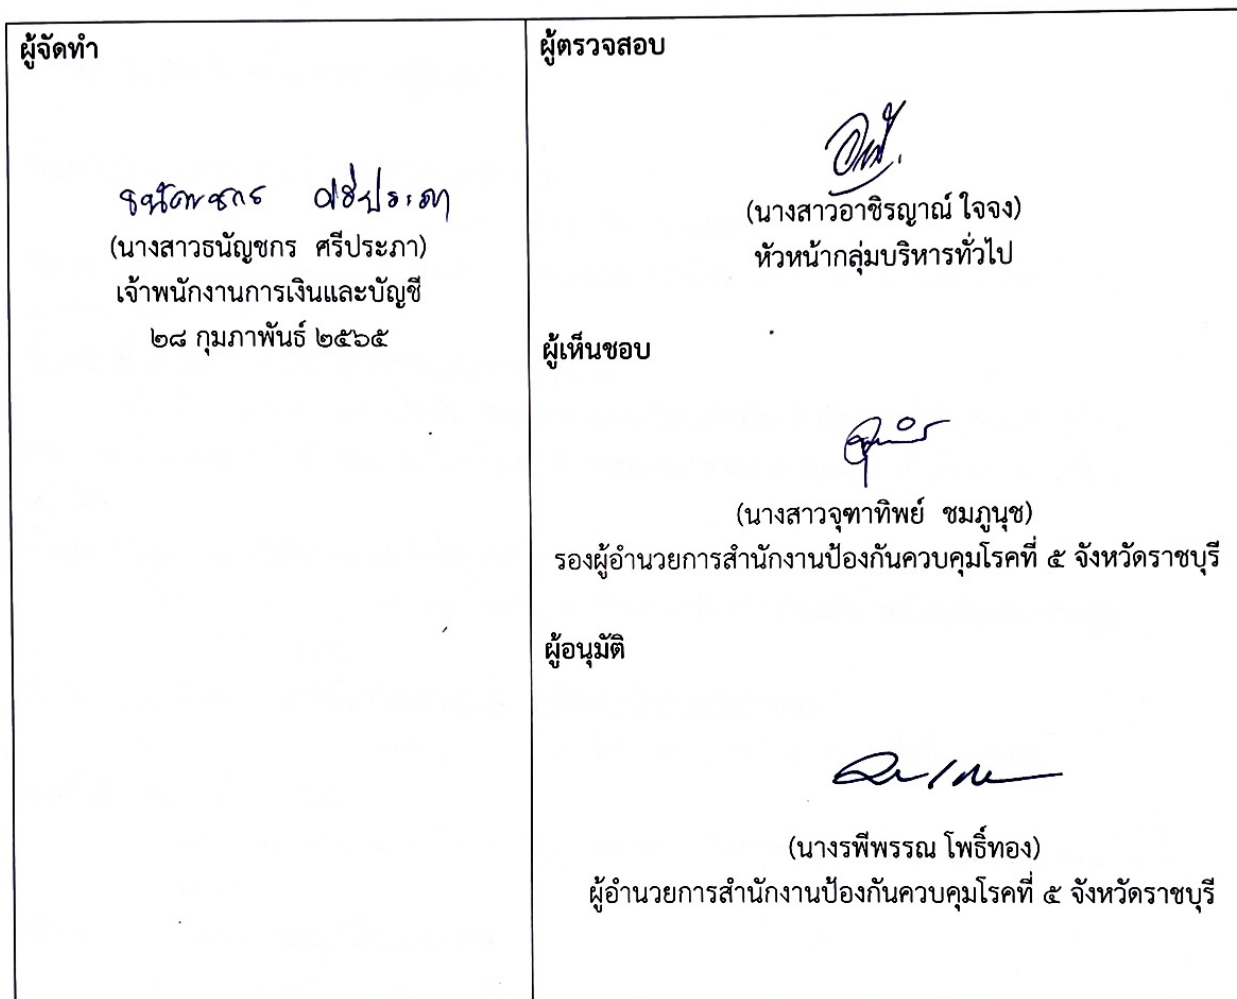 ผู้จัดทำ
ธนัญชกร ศรีประภา
(นางสาวธนัญชกร ศรีประภา)
เจ้าพนักงานการเงินและบัญชี
๒๘ กุมภาพันธ์ ๒๕๖๕
ผู้ตรวจสอบ
(นางสาวอาชิรญาณ์ ใจจง)
หัวหน้ากลุ่มบริหารทั่วไป
ผู้เห็นชอบ
(นางสาวจุฑาทิพย์ ชมภูนุช)
รองผู้อำนวยการสำนักงานป้องกันควบคุมโรคที่ ๕ จังหวัดราชบุรี
ผู้อนุมัติ
(นางรพีพรรณ โพธิ์ทอง)
ผู้อำนวยการสำนักงานป้องกันควบคุมโรคที่ ๕ จังหวัดราชบุรี